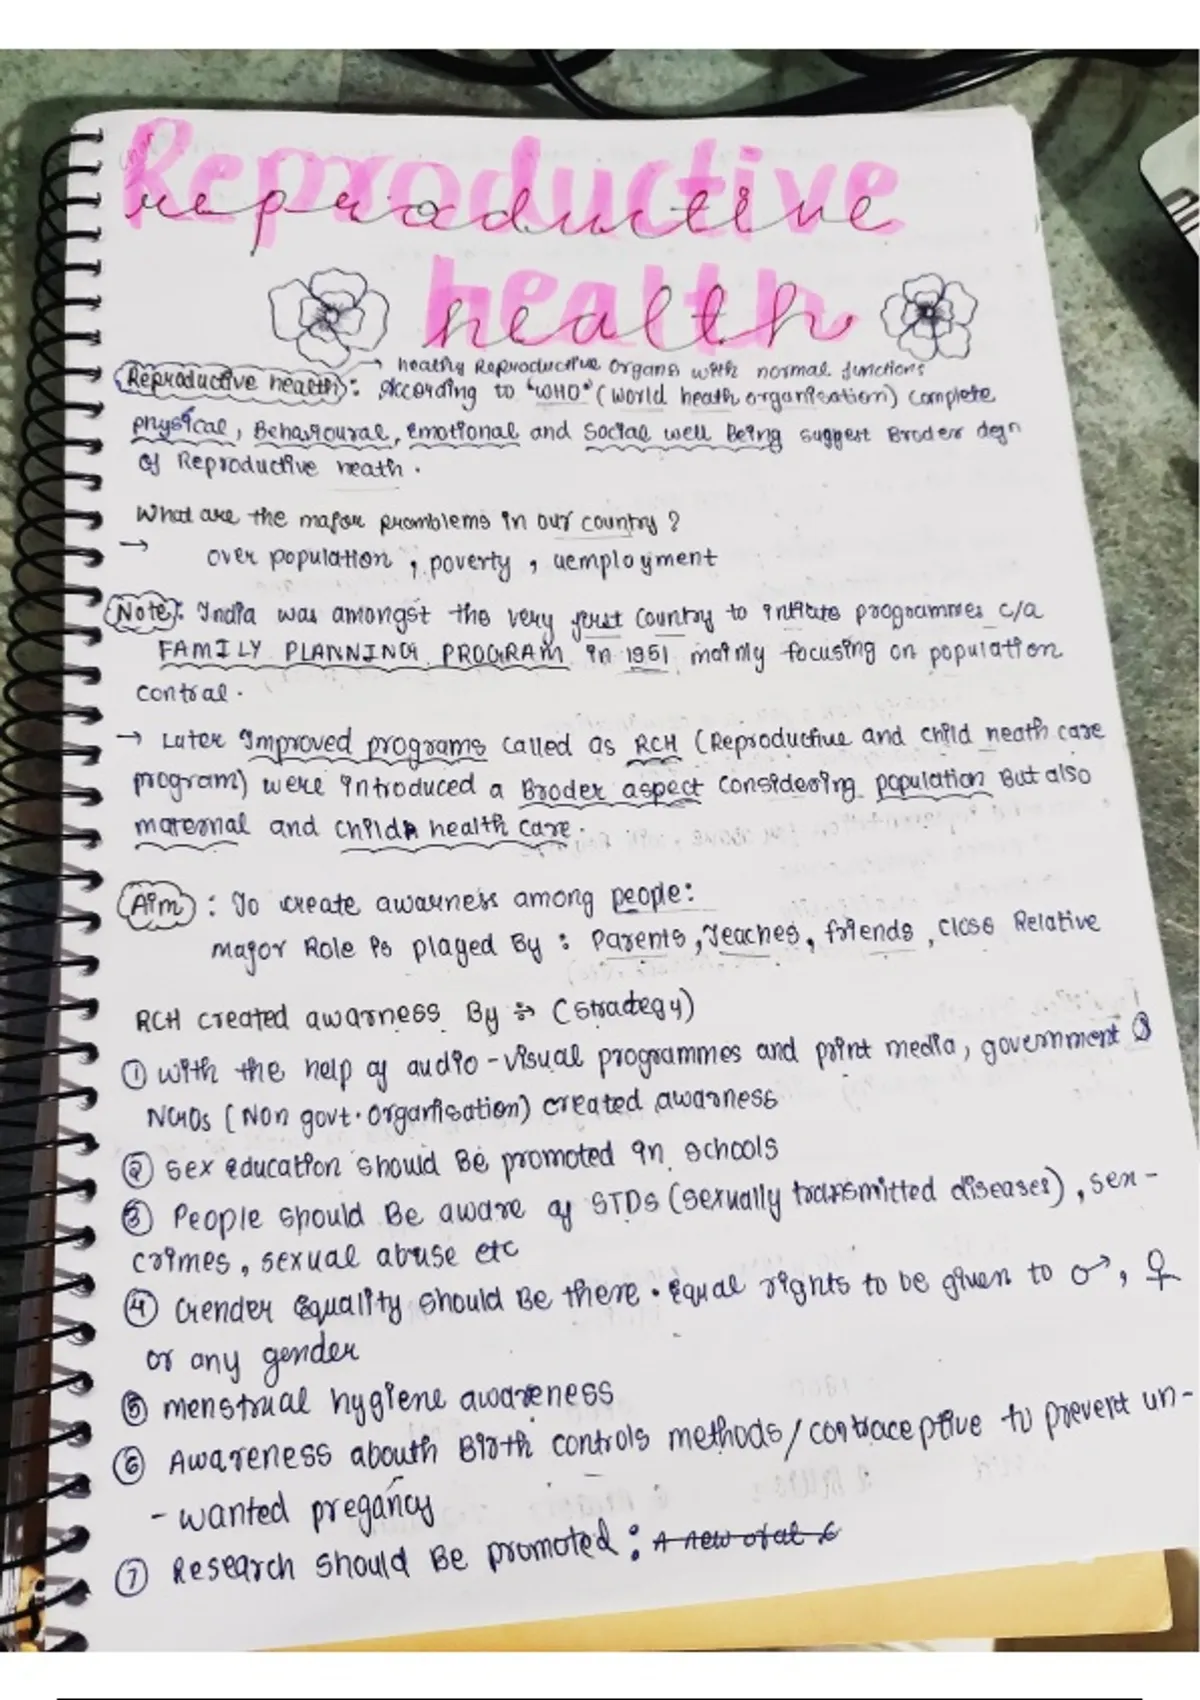 Reproductive
reproductive
health
health
→ healthy Reproductive organs with normal functions
Reproductive health: According to "WHO" (World heath organisation) complete
physical, Behavioural, emotional and social well Being suggest Broder degn
of Reproductive heath.
What are the major promblems in our country?
→ over population, poverty, uemployment
Note: India was amongst the very first country to intitate programmes c/a
FAMILY PLANNING PROGRAM in 1951 mainly focusing on population
control.
→ Later Improved programs called as RCH (Reproductive and child heath care
program) were introduced a Broder aspect considering population But also
maternal and child health care.
Aim: To create awarness among people:
major Role is played By: Parents, Teaches, friends, close Relative
RCH created awarness By :→ (stradegy)
① with the help of audio-visual programmes and print media, government &
NGOs (Non govt. organisation) created awarness
② sex education should Be promoted in schools
③ People should Be aware of STDs (sexually transmitted diseases), sex-
crimes, sexual abuse etc
④ Gender Equality should Be there. Equal rights to be given to ♂, ♀
or any gender
⑤ menstrual hygiene awareness
⑥ Awareness abouth Birth controls methods/contraceptive to prevent un-
-wanted pregancy
⑦ Research should Be promoted: A new oral